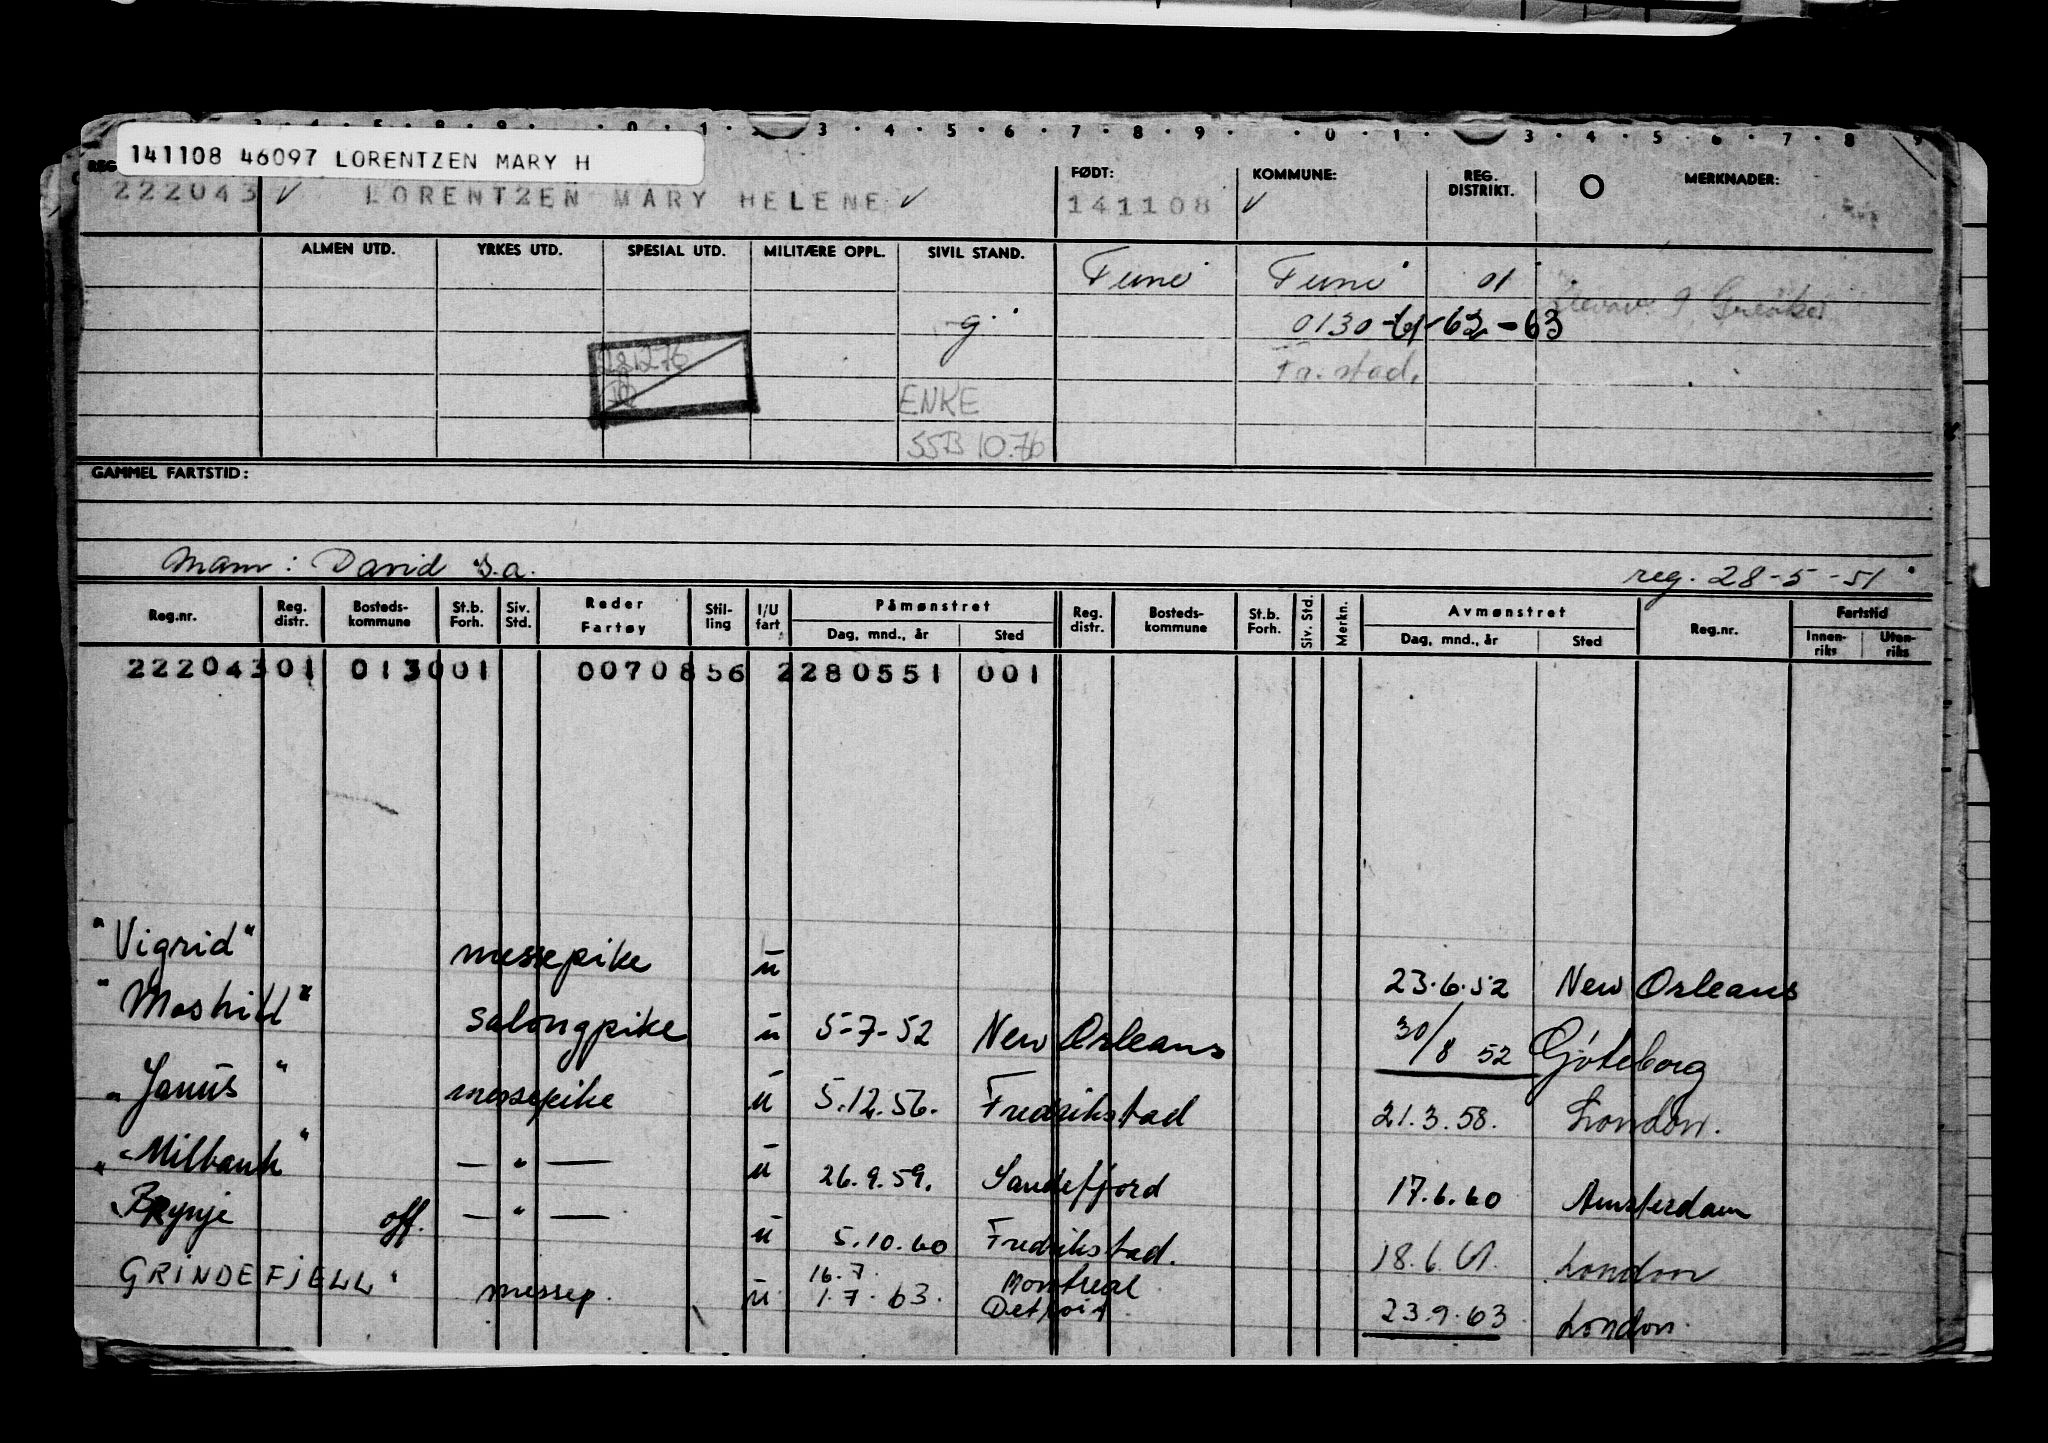 3 . 4 . 5 . 8 . 9 . . 0 . 1 . 3 . 4 . 5 . 6 . 7 . 8 . 9 . . 0 . 1 . 3 . 4 . 5 . 6 . 7 . 8 9
141108 46097 LORENTZEN MARY H
REG. FØDT: KOMMUNE: REG. DISTRIKT. O MERKNADER:
222043 ✓ LORENTZEN MARY HELENE ✓ 141108 ✓
ALMEN UTD. YRKES UTD. SPESIAL UTD. MILITÆRE OPPL. SIVIL STAND.
Tune Tune 01
g. 0130-61-62-63
281276 Fr.stad.
ENKE
SSB 10.76
GAMMEL FARTSTID:
Mann: David S.a. reg. 28-5-51
Reg.nr. Reg. distr. Bosteds-kommune St.b. Forh. Siv. Std. Reder Fartøy Stil-ling I/U fart Påmønstret Dag, mnd., år Sted Reg. distr. Bosteds-kommune St.b. Forh. Siv. Std. Merkn. Avmønstret Dag, mnd., år Sted Reg.nr. Fartstid Innen-riks Uten-riks
22204301 013001 0070856 2280551 001
"Vigrid" messepike u 23.6.52 New Orleans
"Moshill" salongpike u 5-7-52 New Orleans 30/8 52 Göteborg
"Janus" messepike u 5.12.56. Fredrikstad 21.3.58. London.
"Milbank" — " — u 26.9.59. Sandefjord 17.6.60 Amsterdam
Brynje off. — " — u 5.10.60 Fredrikstad. 18.6.61. London
16.7. Montreal
GRINDEFJELL messep. u 1.7.63. Detroit 23.9.63 London.